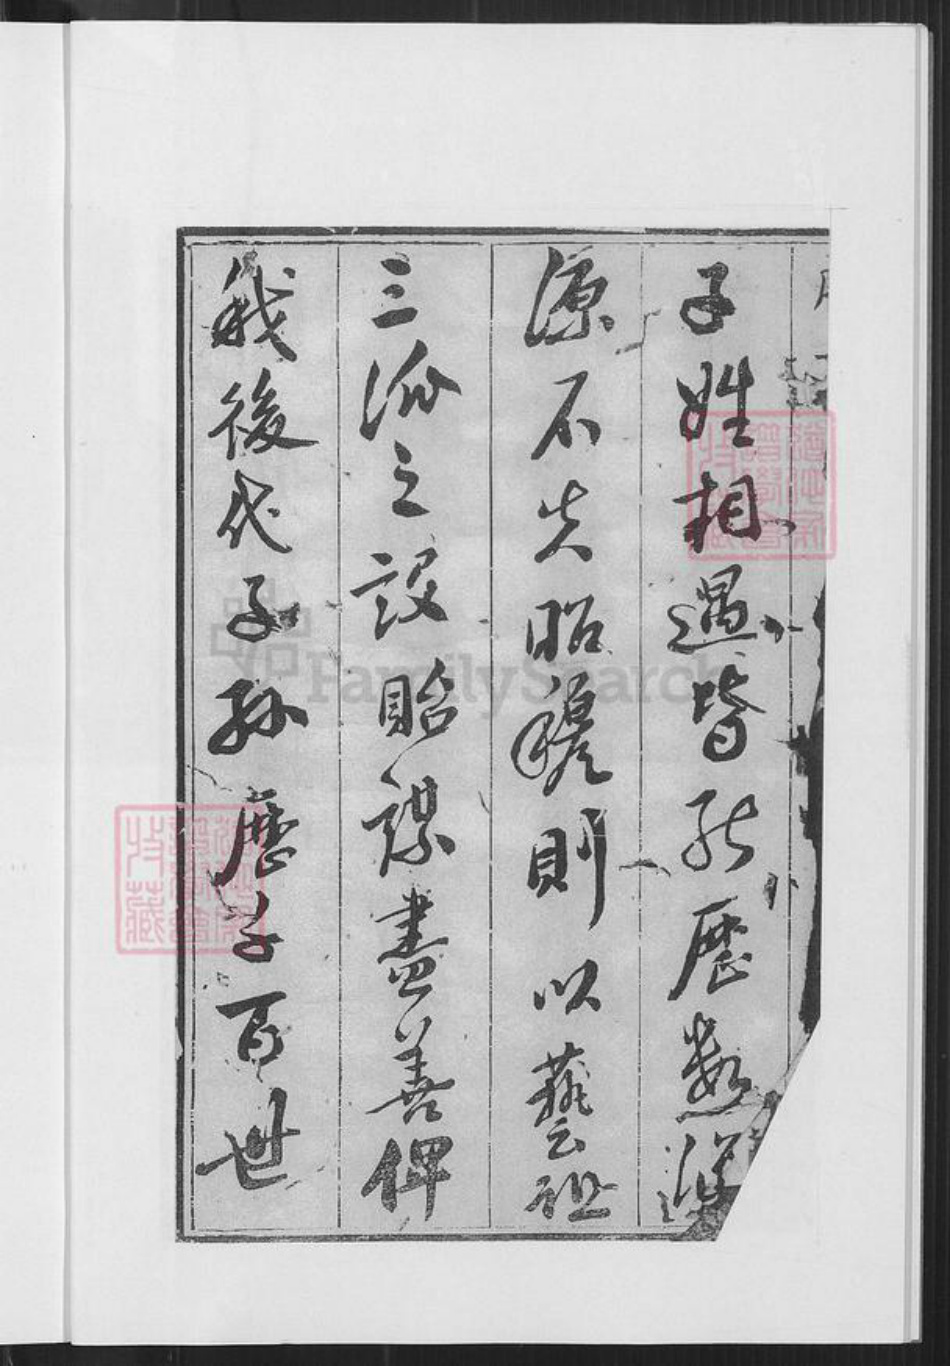 子姓相遇皆能歷數深
源不失昭穆則以藝祖
三派之設貽謀盡善俾
我後代子孫歷千百世
FamilySearch